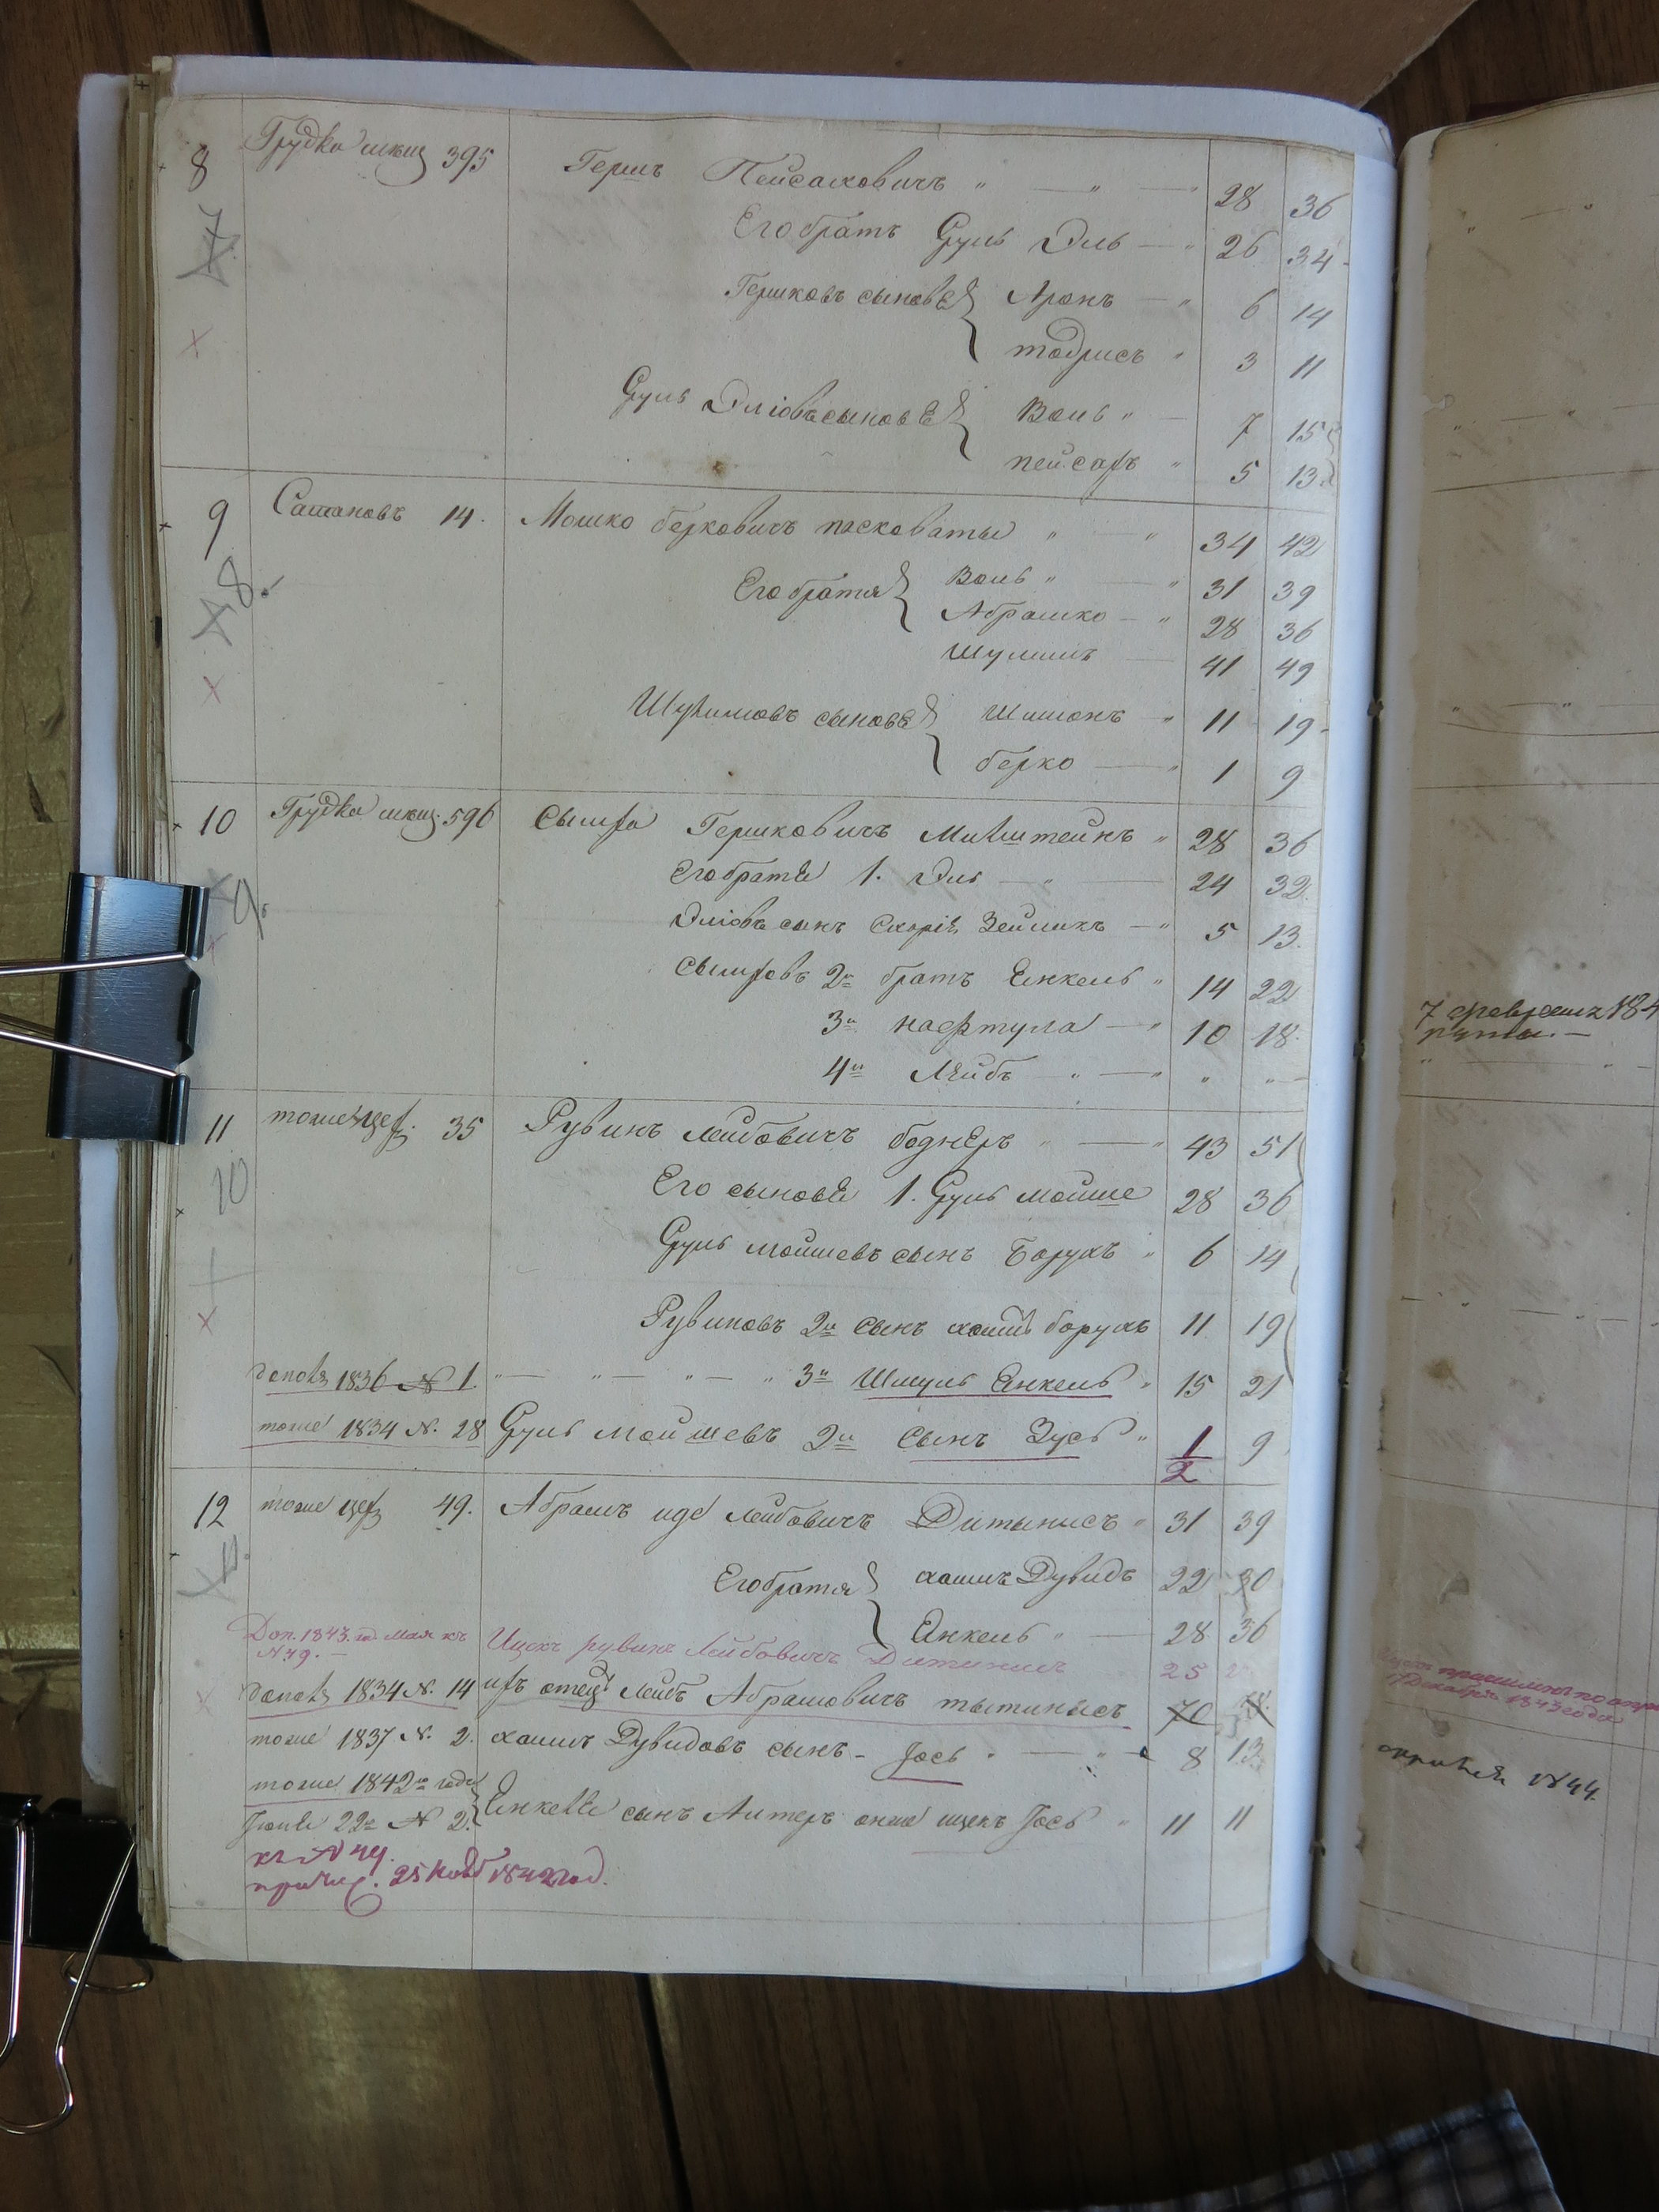 8 Грудка мѣщ 395 Гершъ Пейсаховичъ 28 36
Его братъ Сруль Эль 26 34
7
Гершковъ сыновѣ Аронъ 6 14
тодрисъ 3 11
Сруль Эліовъ сыновѣ Воль 7 15
пейсахъ 5 13
9 Сатановъ 14. Мошко берковичъ пасковаты 34 42
8. Его братя Воль 31 39
Абрашко 28 36
Шулимъ 41 49
Шулимовъ сыновѣ Шимонъ 11 19
берко 1 9
10 Грудка мѣщ. 596 Сымха Гершковичъ Милштейнъ 28 36
9. Его братѣ 1. Эль 24 32
Эліовъ сынъ Зейликъ 5 13.
Сымховъ 2й братъ Енкель 14 22
3й нафтула 10 18
4й Лейб
11 тоже 35 Рувинъ лейбовичъ боднеръ 43 51
10 Его сыновѣ 1. Сруль мойше 28 36
Сруль мойшевъ сынъ Борухъ 6 14
Рувиновъ 2й сынъ хаимъ борухъ 11 19
1836 № 1. 3й Шмуль Енкель 15 21
тоже 1834 № 28 Сруль мойшевъ 2й сынъ Зусь 1/2 9
12 тоже 49. Абрамъ иде лейбовичъ Дитынисъ 31 39
11. Его братя хаимъ Дувидъ 22 30
Енкель 28 36
Доп. 1843. год Мая къ Ицекъ рувинъ Лейбовичъ Дитинисъ 25
№ 49.
1834 № 14 ихъ отецъ лейбъ Абрамовичъ тытинисъ 70 78
тоже 1837 № 2. хаимъ Дувидовъ сынъ - Іось 8 13
тоже 1842го года
Іюнѣ 22го № 2. Енкелѣ сынъ Алтеръ онже ицекъ Іось 11 11
къ № 49.
причис. 25 Нояб 1842 год.
7 февраля 184
Декабря 1843 года
апрѣля 1844.